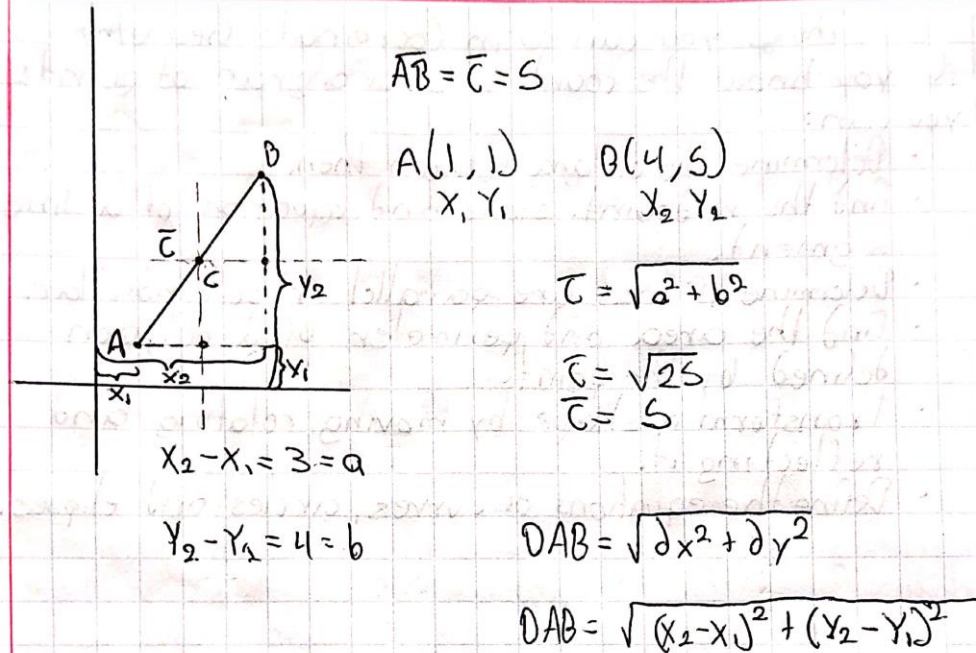 A̅B̅ = C̅ = 5
A(1, 1) B(4, 5)
X₁ Y₁ X₂ Y₂
B
C̅
Ĉ
Y₂
A
X₂
Y₁
X₁
C̅ = √a² + b²
C̅ = √25
C̅ = 5
X₂ - X₁ = 3 = a
Y₂ - Y₂ = 4 = b
DAB = √∂x² + ∂y²
DAB = √(X₂-X₁)² + (Y₂-Y₁)²